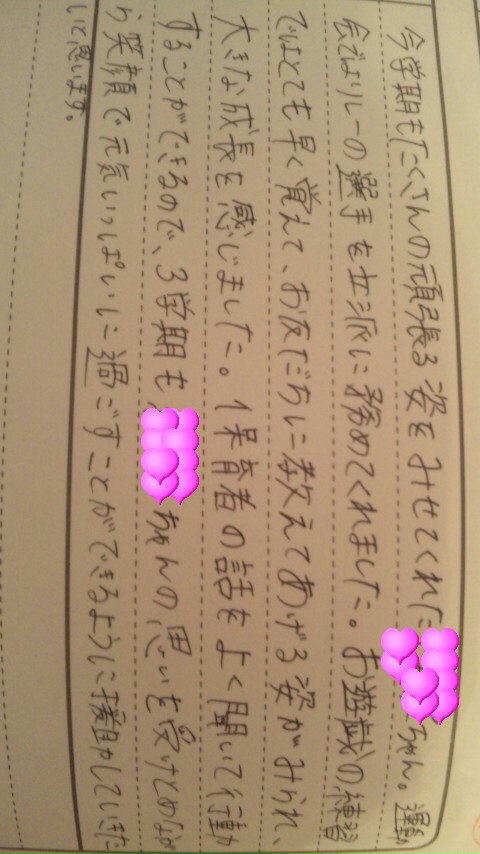 今学期もたくさんの頑張る姿をみせてくれた ちゃん。運動
会ではリレーの選手を立派に務めてくれました。お遊戯の練習
ではとても早く覚えて、お友だちに教えてあげる姿がみられ、
大きな成長を感じました。保育者の話をよく聞いて行動
することができるので、3学期も ちゃんの思いを受けとめなが
ら笑顔で元気いっぱいに過ごすことができるように援助していきた
いと思います。